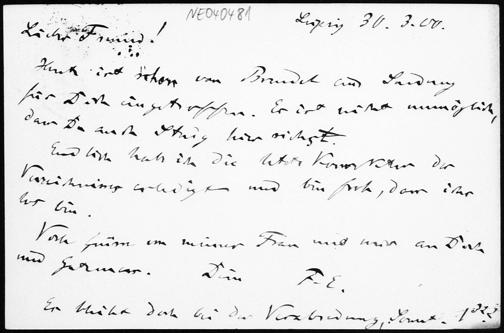 NE040481
Leipzig 30.3.00.
Lieber Freund!
Heute ist schon von Brendel aus Sendung
für Dich eingetroffen. Es ist nicht unmöglich,
dass Du auch Studig hier siehst.
Endlich hab ich die letzte Korrektur des
Verzeichnisses erledigt und bin froh, dass ich es
los bin.
Viele Grüsse von meiner Frau und mir an Dich
und Germar. Dein F. E.
Es bleibt doch bei der Verabredung, Sonnt. 1